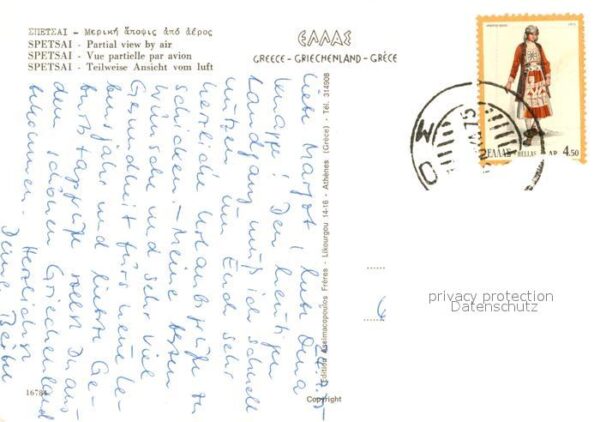 ΣΠΕΤΣΑΙ - Μερική ἄποψις ἀπό ἀέρος
SPETSAI - Partial view by air
SPETSAI - Vue partielle par avion
SPETSAI - Teilweise Ansicht vom luft
ΕΛΛΑΣ
GREECE - GRIECHENLAND - GRÈCE
ΕΛΛΑΣ - HELLAS ΔΡ 4.50
75
Liebe Margot! Liebe Oma
Knapp! Den heutigen
Landgang muß ich schnell
nützen, um Euch sehr
herzliche Urlaubsgrüße zu
schicken. - Meine besten
Wünsche und sehr viel
Gesundheit fürs neue Le-
bensjahr und liebste Ge-
burtstagsgrüße sollst Du aus
dem schönen Griechenland
bekommen. Herzlichst
Deine
Editions Asélmacopoulos Frères - Likourgou 14-16 - Athènes (Grèce) - Tél. 314908
Copyright
privacy protection
Datenschutz